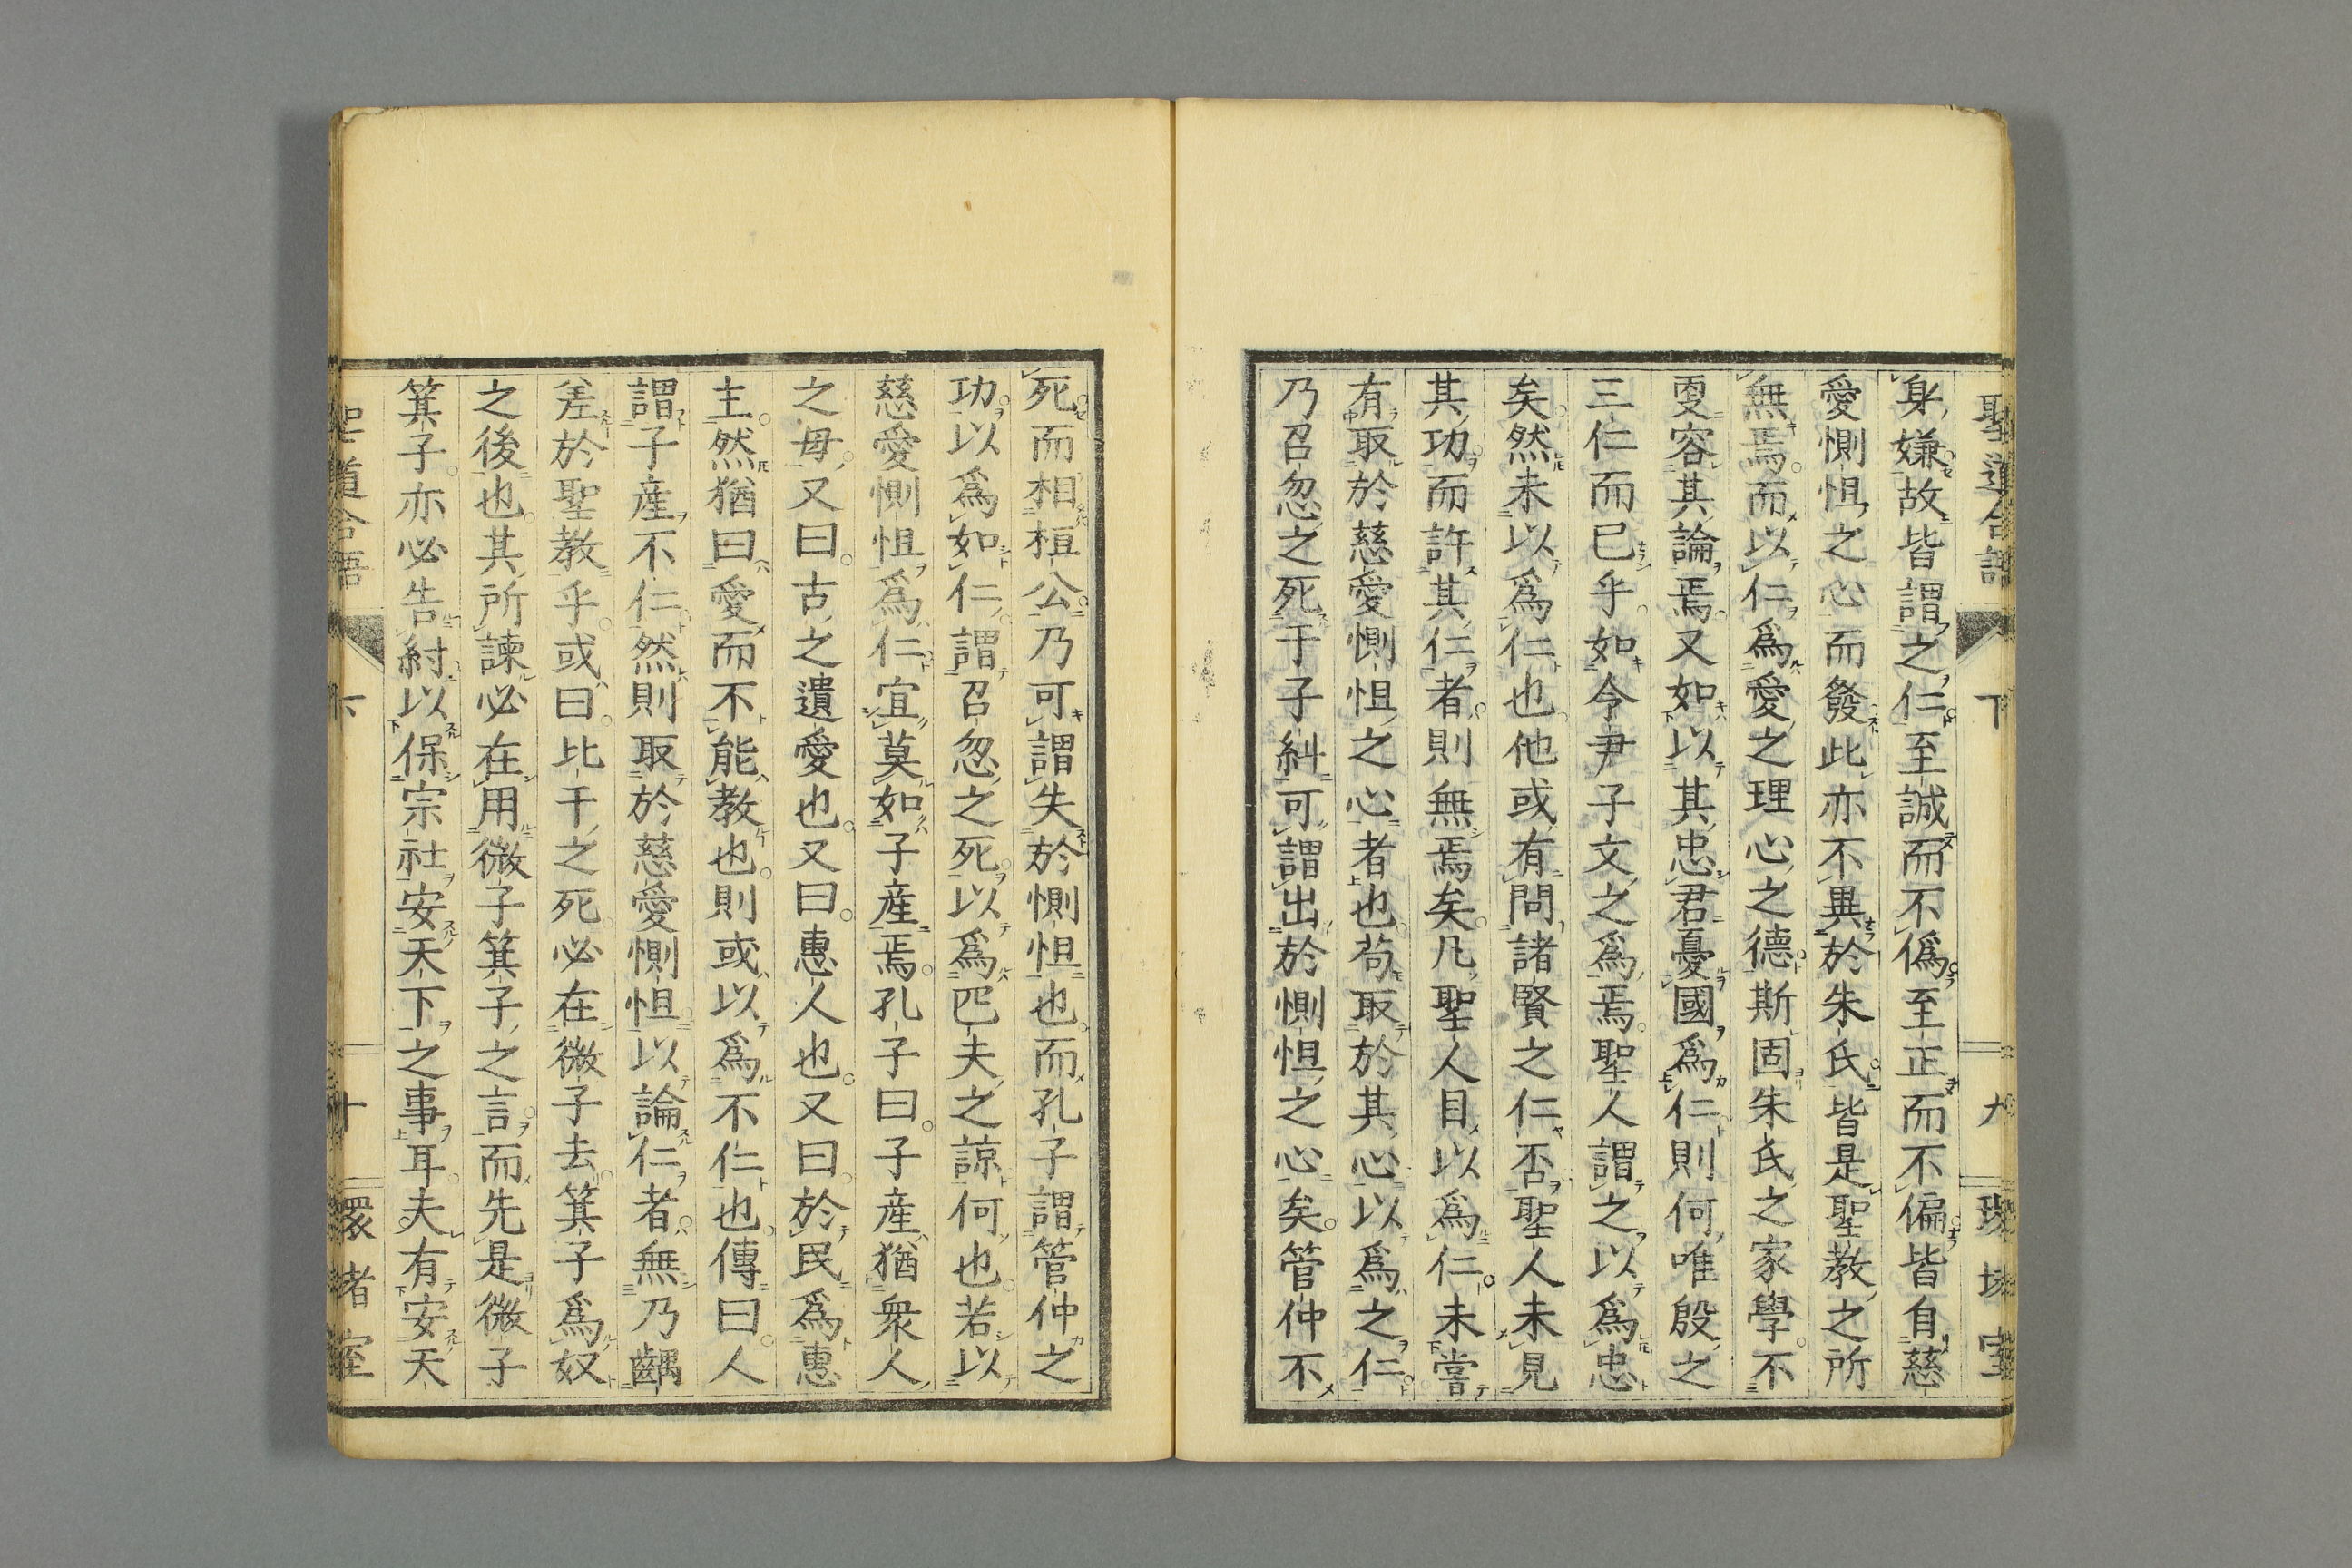 身嫌故皆謂之仁至誠而不偽至正而不偏皆自慈
愛惻怛之心而發此亦不異於朱氏皆是聖教之所
無焉而以仁為愛之理心之德斯固朱氏之家學不
㪅容其論焉又如以其忠君憂國為仁則何唯殷之
三仁而已乎如令尹子文之為焉聖人謂之以為忠
矣然未以為仁也他或有問諸賢之仁否聖人未見
其功而許其仁者則無焉矣凡聖人目以為仁未嘗
有取於慈愛惻怛之心者也苟取於其心以為之仁
乃召忽之死于子糾可謂出於惻怛之心矣管仲不
死而相桓公乃可謂失於惻怛也而孔子謂管仲之
功以為如仁謂召忽之死以為匹夫之諒何也若以
慈愛惻怛為仁宜莫如子產焉孔子曰子產猶衆人
之母又曰古之遺愛也又曰惠人也又曰於民為惠
主然猶曰愛而不能教也則或以為不仁也傳曰人
謂子產不仁然則取於慈愛惻怛以論仁者無乃齲
差於聖教乎或曰比干之死必在微子去箕子為奴
之後也其所諫必在用微子箕子之言而先是微子
箕子亦必告紂以保宗社安天下之事耳夫有安天